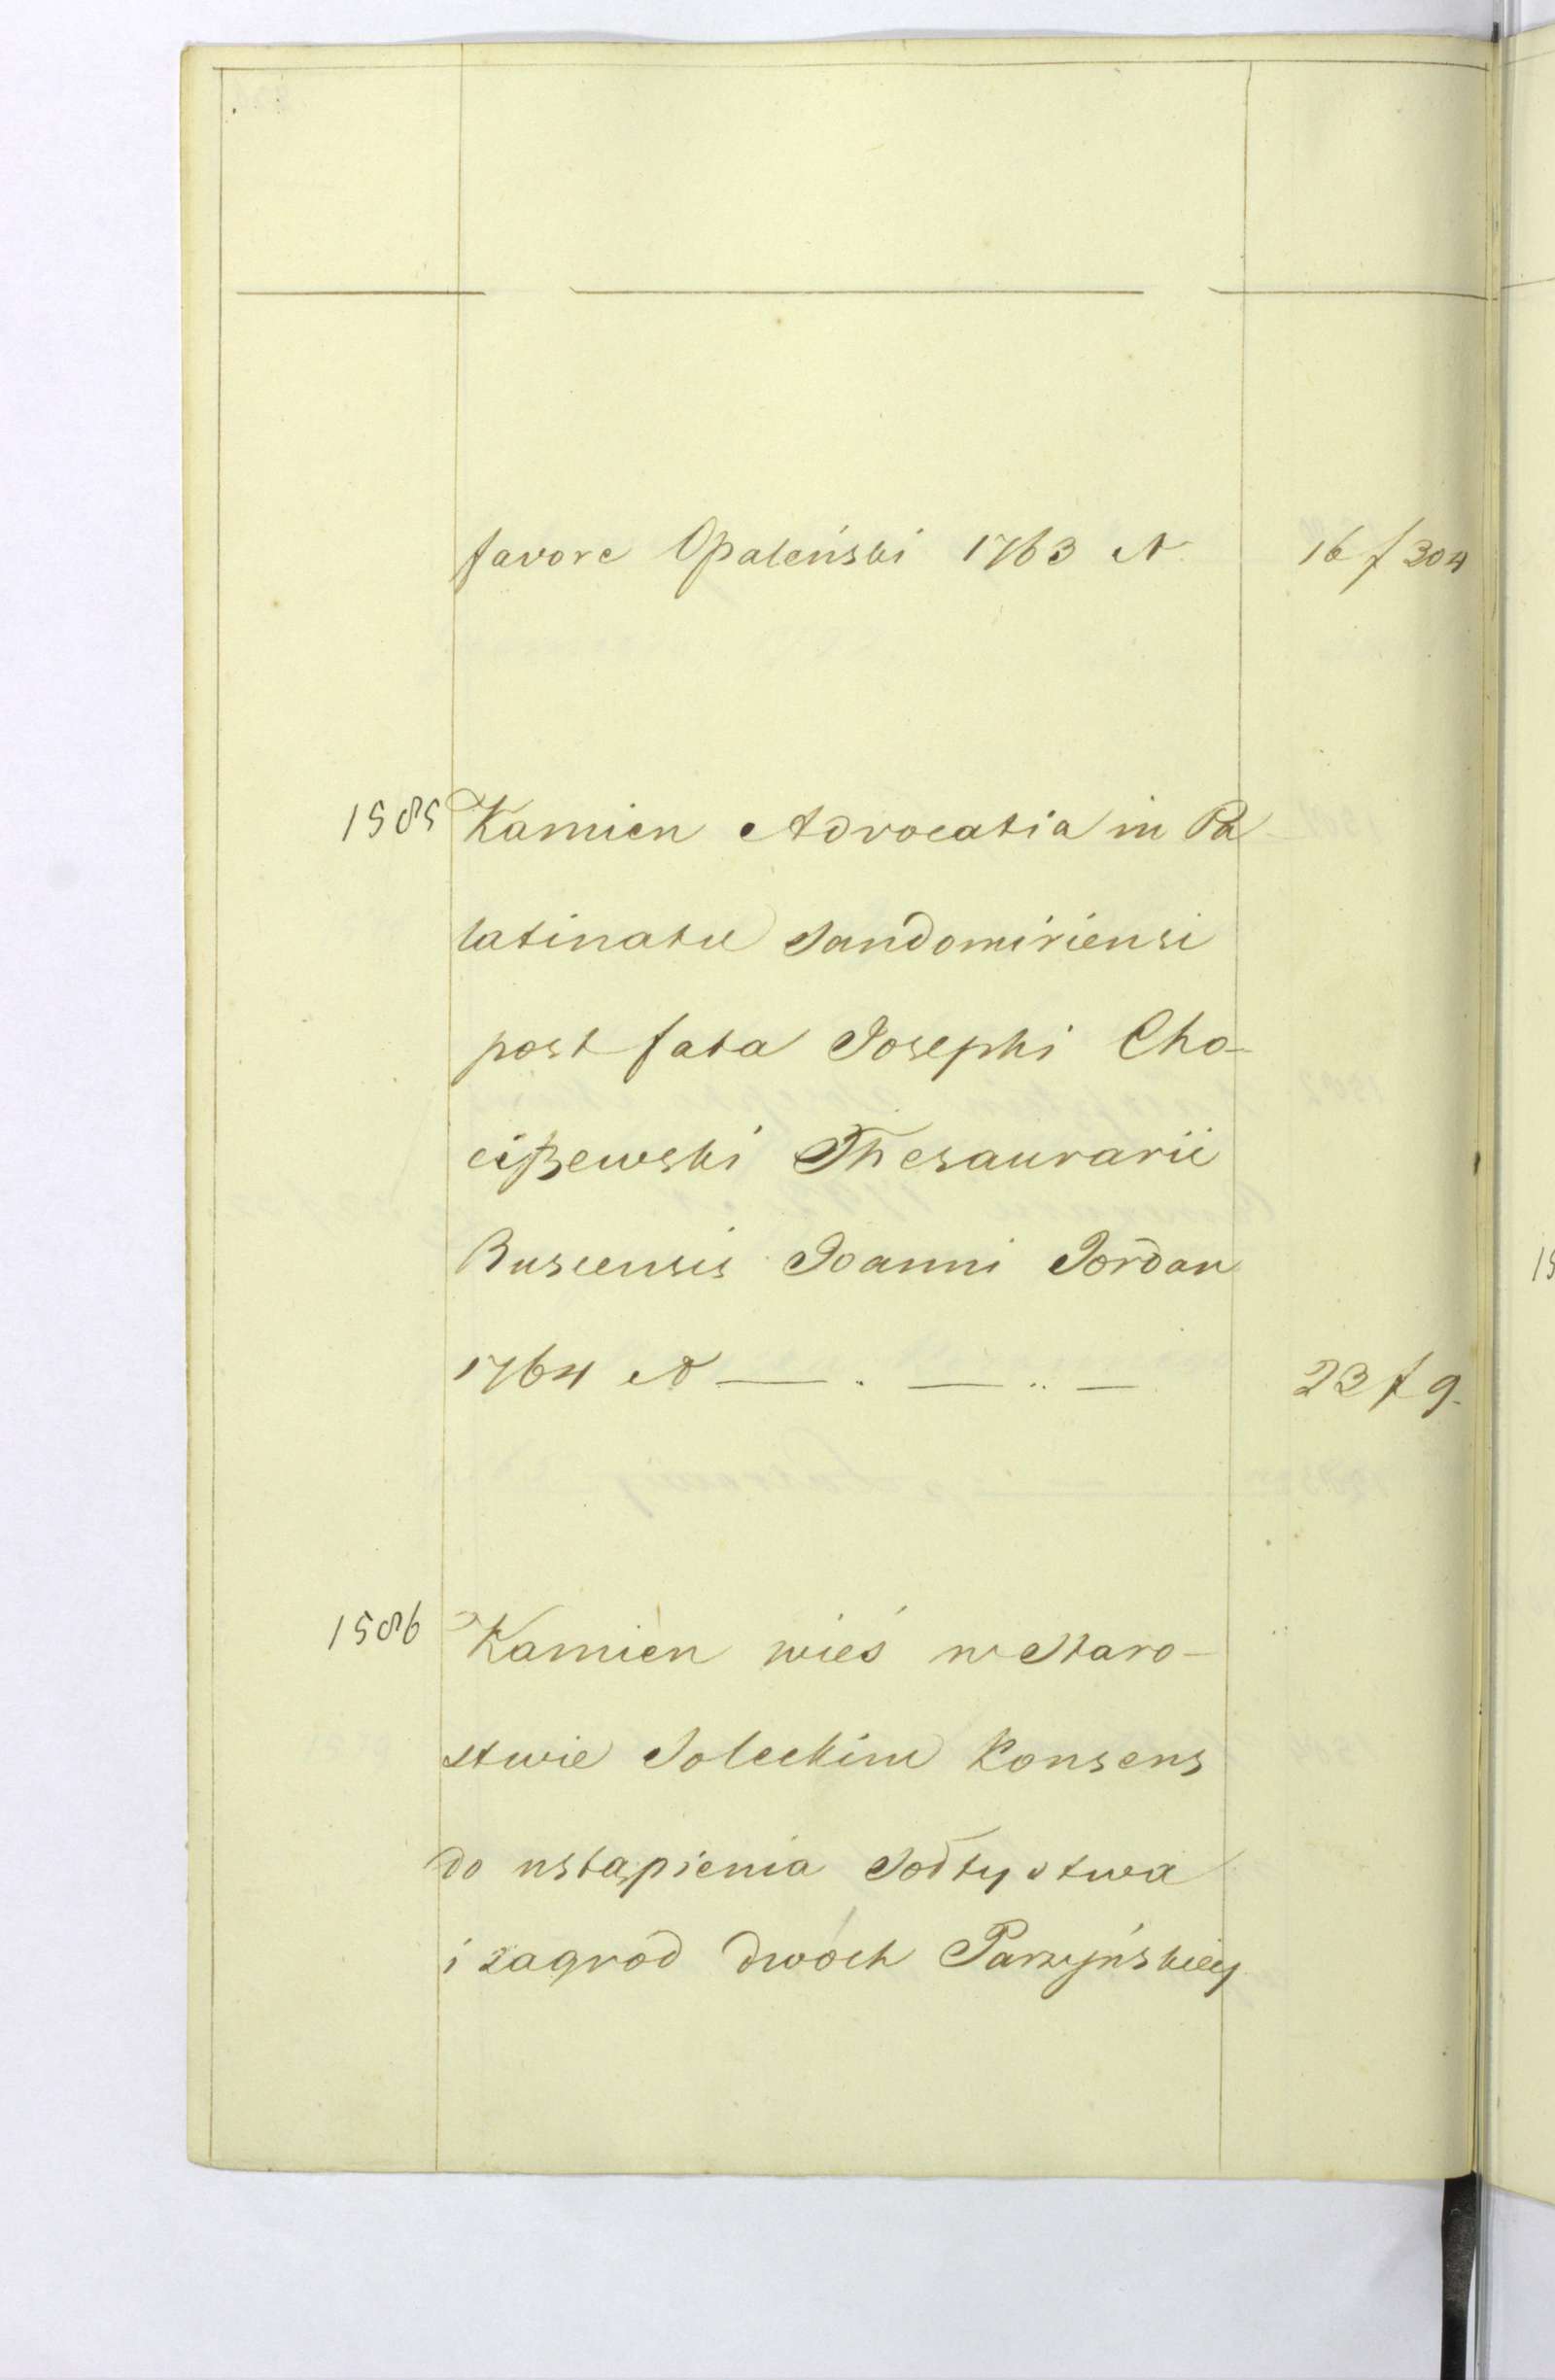 favore Opaleński 1763 N 16 f 304
1585 Kamien Advocatia in Pa
latinatu Sandomiriensi
post fata Josephi Cho-
ciszewski Thesaurarii
Buscensis Joanni Jordan
1764 N — . — .. — 23 f 9.
1586 Kamien wieś w Staro-
stwie Soleckim Konsens
do ustąpienia Sołtystwa
i zagród dwóch Parzyńskiey